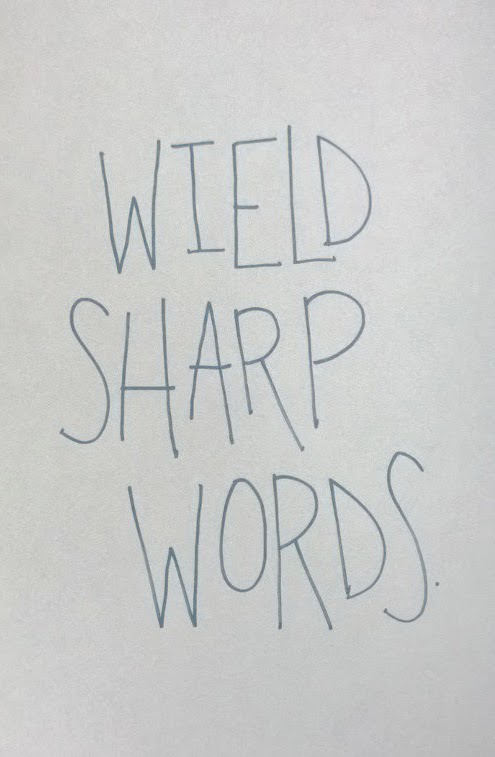 WIELD
SHARP
WORDS.